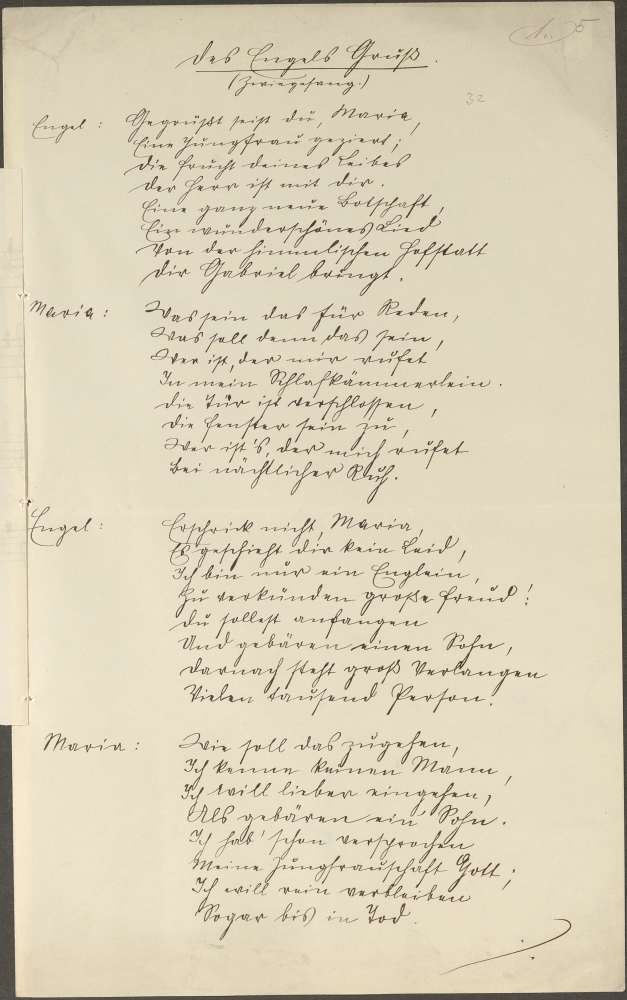 1. 5
Des Engels Gruß.
(Zwiegesang.)
32
Engel: Gegrüßt seist du, Maria,
Eine Jungfrau geziert;
Die Frucht deines Leibes
Der Herr ist mit dir.
Eine ganz neue Botschaft,
Ein wunderschönes Lied
Von der himmlischen Hofstatt
Dir Gabriel bringt.
Maria: Was sein das für Reden,
Was soll denn das sein,
Wer ist, der mir rufet
In mein Schlafkämmerlein.
Die Tür ist verschlossen,
Die Fenster sein zu,
Wer ist's, der mich rufet
Bei nächtlicher Ruh.
Engel: Erschrick nicht, Maria,
Es geschieht dir kein Leid,
Ich bin nur ein Englein,
Zu verkünden große Freud!:
Du sollest anfangen
Und gebären einen Sohn,
Darnach steht groß Verlangen
Vielen tausend Person.
Maria: Wie soll das zugehen,
Ich kenne keinen Mann,
Ich will lieber eingehen,
Als gebären ein' Sohn.
Ich hab' schon versprochen
Meine Jungfrauschaft Gott;
Ich will rein verbleiben
Sogar bis in Tod.